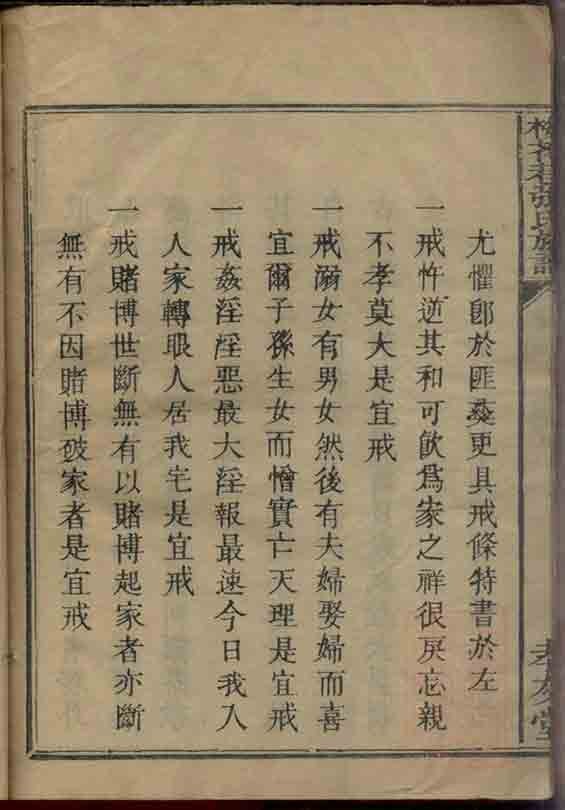 張氏族譜
孝友堂
尤懼卽於匪彝更具戒條特書於左
一戒忤逆其和可飲爲家之祥很戾忘親
不孝莫大是宜戒
一戒溺女有男女然後有夫婦娶婦而喜
宜爾子孫生女而憎實亡天理是宜戒
一戒姦淫淫惡最大淫報最速今日我入
人家轉眼人居我宅是宜戒
一戒賭博世斷無有以賭博起家者亦斷
無有不因賭博破家者是宜戒